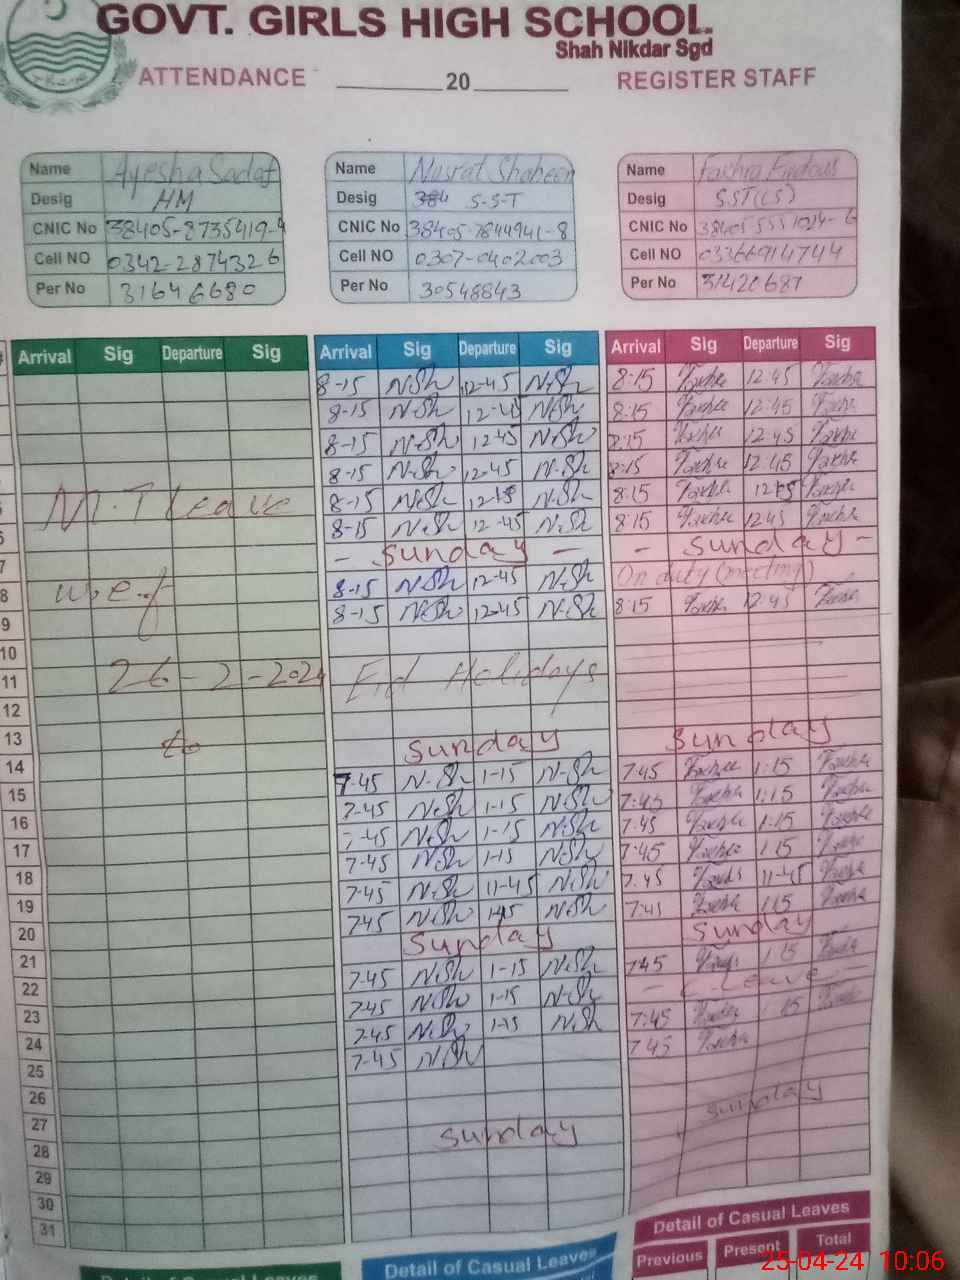 GOVT. GIRLS HIGH SCHOOL
Shah Nikdar Sgd
ATTENDANCE ________20________ REGISTER STAFF
Name Ayesha Sadaf
Desig HM
CNIC No 38405-8735419-4
Cell NO 0342-2874326
Per No 31646680
Name Nusrat Shaheen
Desig S-S-T
CNIC No 38405-7844941-8
Cell NO 0307-0402003
Per No 30548843
Name Fakhra Firdous
Desig SST(CS)
CNIC No 38405-5551024-6
Cell NO 03366914744
Per No 31420687
Arrival Sig Departure Sig
M.T leave
w.e.f
26-2-2024
to
Arrival Sig Departure Sig
8-15 N.Sh 12-45 N.Sh
8-15 N.Sh 12-45 N.Sh
8-15 N.Sh 12-45 N.Sh
8-15 N.Sh 12-45 N.Sh
8-15 N.Sh 12-45 N.Sh
8-15 N.Sh 12-45 N.Sh
- Sunday -
8-15 N.Sh 12-45 N.Sh
8-15 N.Sh 12-45 N.Sh
Eid Holidays
Sunday
7-45 N-Sh 1-15 N-Sh
7-45 N.Sh 1-15 N.Sh
7-45 N.Sh 1-15 N.Sh
7-45 N.Sh 1-15 N.Sh
7-45 N.Sh 11-45 N.Sh
7-45 N.Sh 1-15 N.Sh
Sunday
7-45 N.Sh 1-15 N.Sh
7-45 N.Sh 1-15 N.Sh
7-45 N.Sh 1-15 N.Sh
7-45 N.Sh
Sunday
Arrival Sig Departure Sig
8:15 12:45
8:15 12:45
8:15 12:45
8:15 12:45
8:15 12:45
8:15 12:45
- Sunday -
On duty (meeting)
8:15 12:45
Sunday
7:45 1:15
7:45 1:15
7:45 1:15
7:45 1:15
7:45 11-45
7:45 1:15
Sunday
7:45 1:15
- C-Leave -
7:45 1:15
7:45
Sunday
7
8
9
10
11
12
13
14
15
16
17
18
19
20
21
22
23
24
25
26
27
28
29
30
31
Detail of Casual Leaves
Detail of Casual Leaves
Detail of Casual Leaves
Previous Present Total
25-04-24 10:06